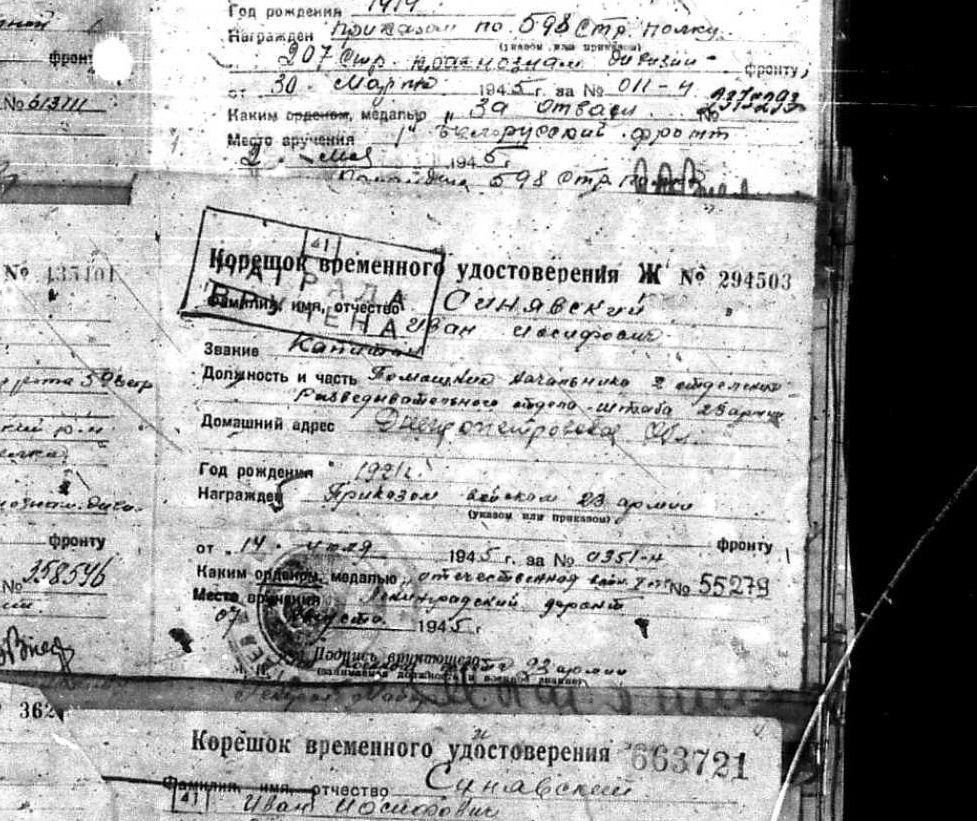 Год рождения 1919
Награжден Приказом по 598 Стр. полку
(указом или приказом)
207 Стр. Краснознам дивизии фронту,
от 30 Марта 1945 г. за № 011-н
Каким орденом, медалью "За отваги № 2375293
Место вручения 1й Белорусский фронт
2 мая 1945 г.
598 Стр.
№ 613111
фронт
№ 135101
Корешок временного удостоверения Ж № 294503
41
НАГРАДА
ВРУЧЕНА
Фамилия, имя, отчество Синявский
Иван Иосифович
Звание Капитан
Должность и часть Помощник начальника 2 отделения
Разведывательного отдела штаба 23 армии
Домашний адрес Днепропетровская обл.
Год рождения 1921 г.
Награжден Приказом войскам 23 армии
(указом или приказом)
фронту
от "14" июля 1945 г. за № 0351-н
Каким орденом, медалью отечественной войн № 55279
Место вручения Ленинградский фронт
07 Августа 1945 г.
Подпись вручающего
(занимаемая должность и военное звание)
фронту
№ 358546
362
Корешок временного удостоверения 663721
Фамилия, имя, отчество Синявский
41
Иван Иосифович